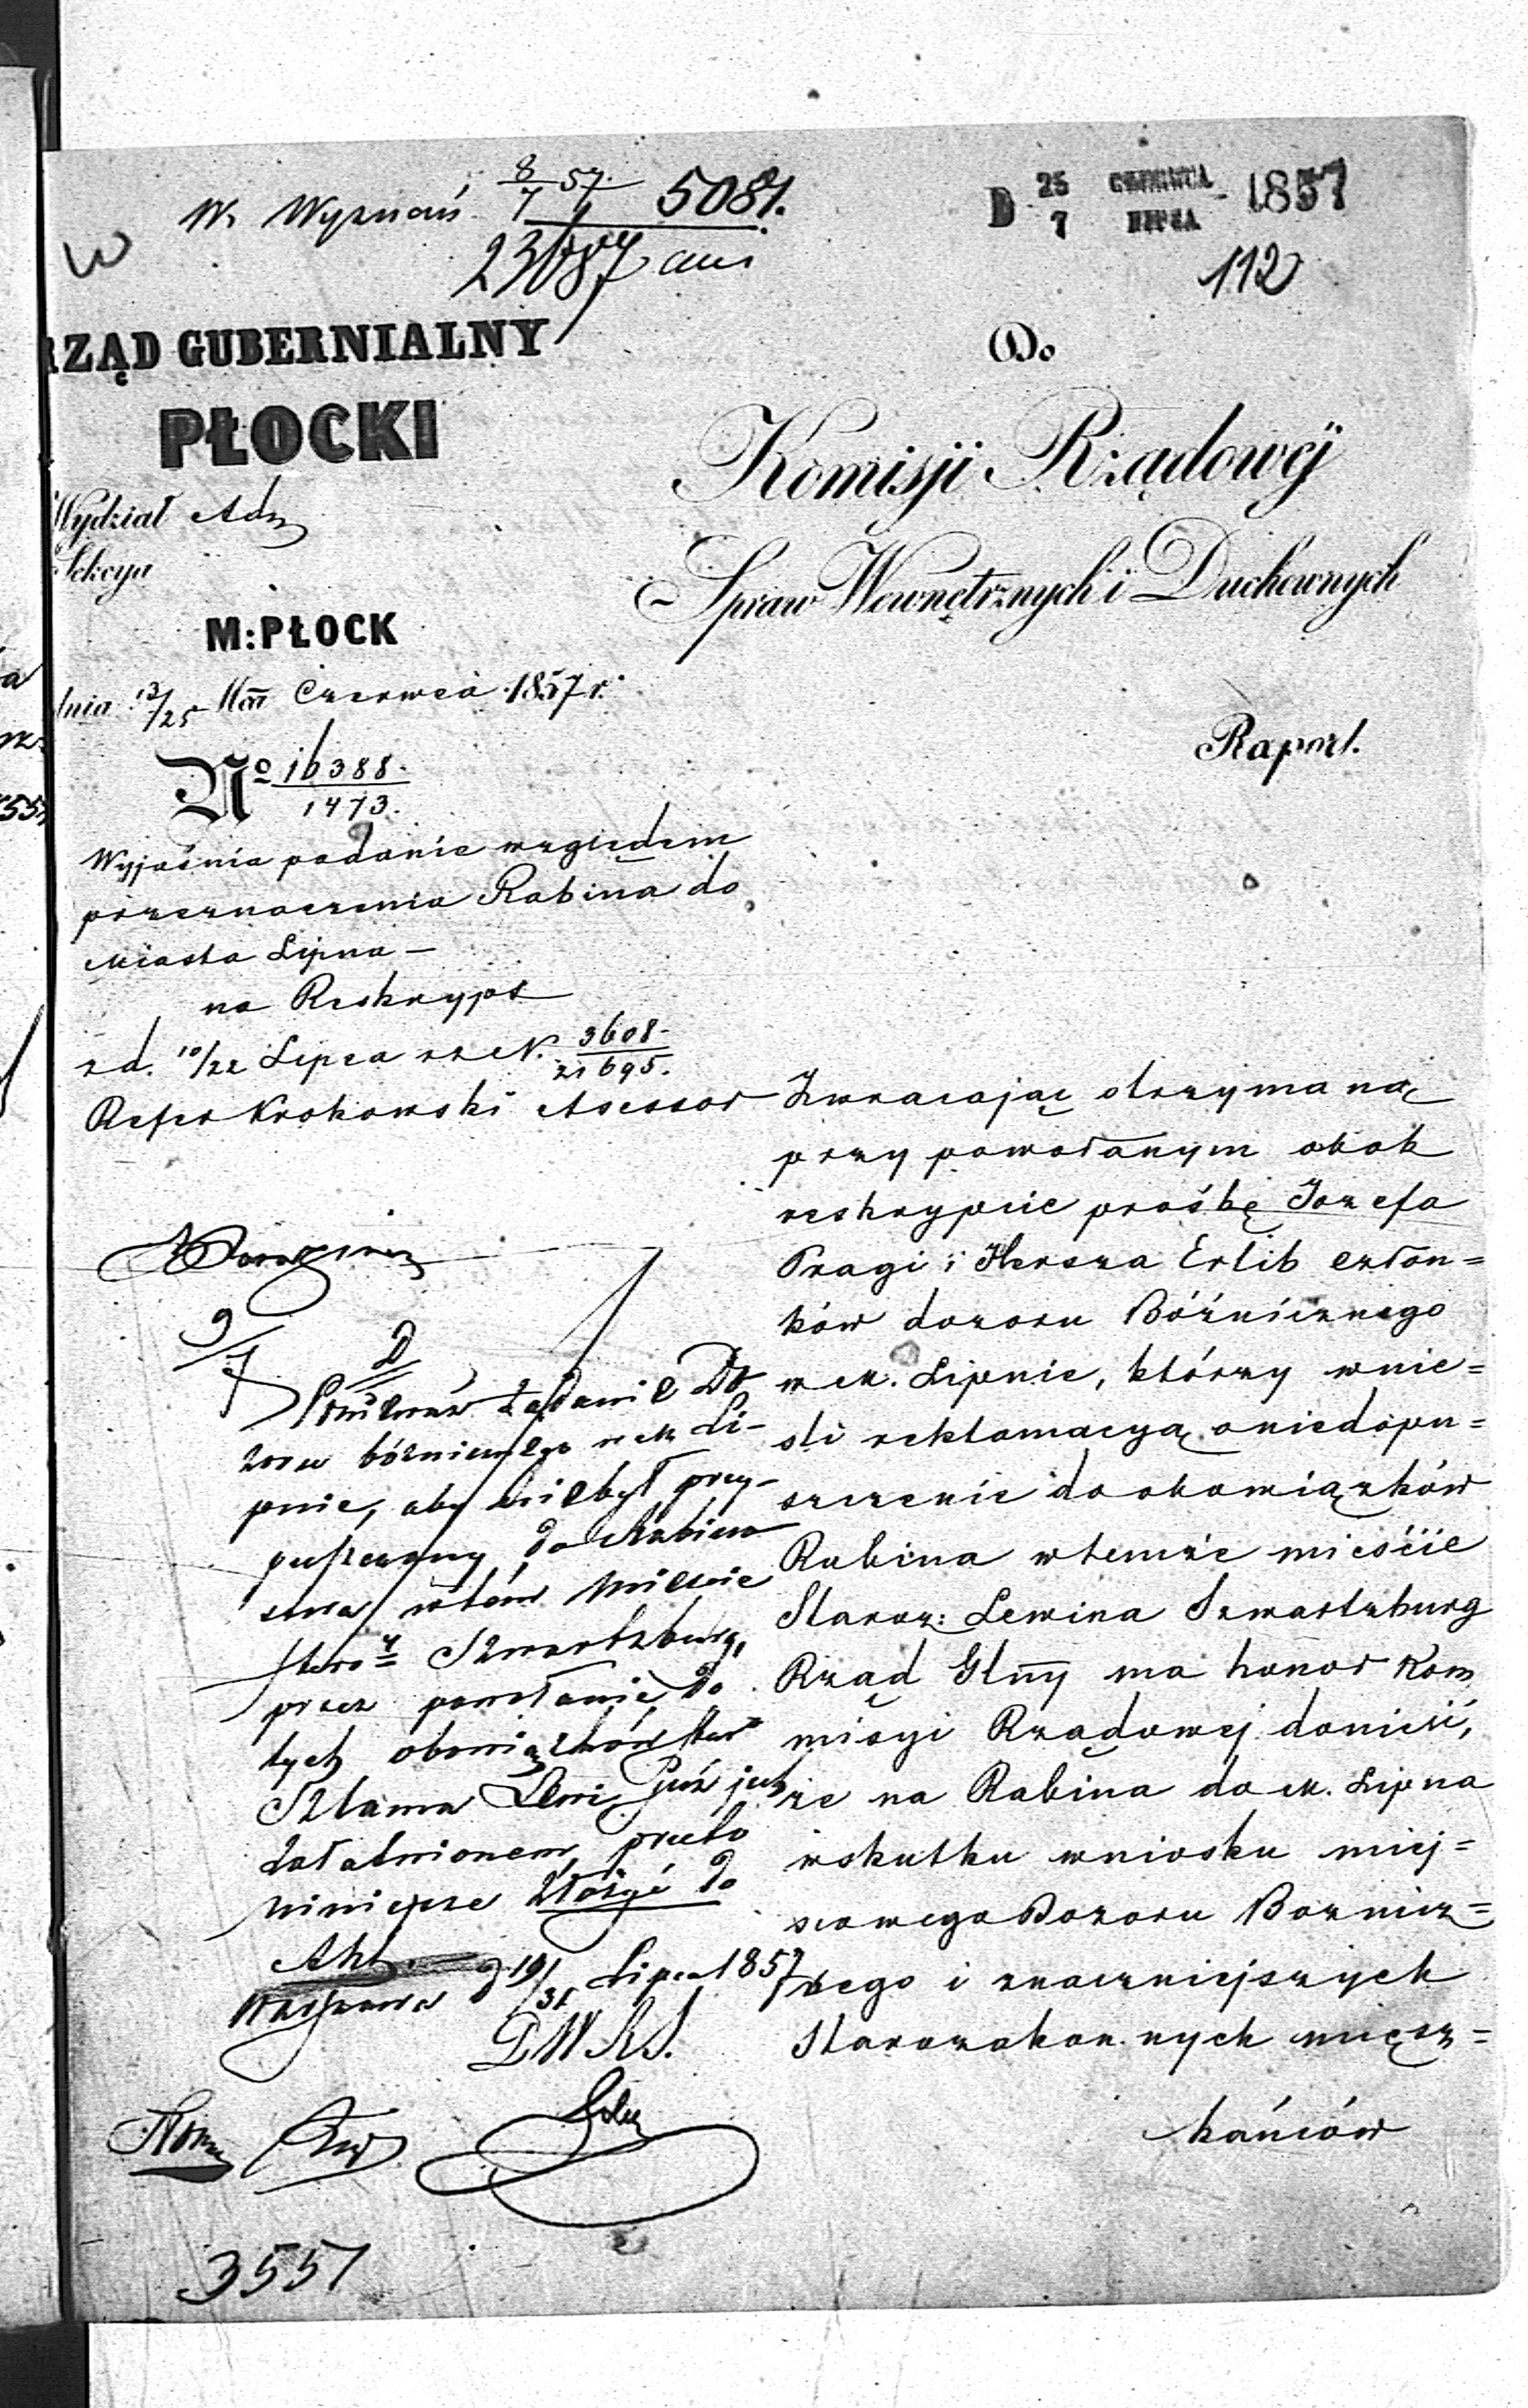 W. Wyznań 8/7 57. 5081.
23087
D 25 CZERWCA 1857
7 LIPCA
112
RZĄD GUBERNIALNY
PŁOCKI
Wydział Adm
Sekcya
M: PŁOCK
dnia 13/25 Czerwca 1857 r.
No 16388.
1473.
Wyjaśnia podanie względem
przeznaczenia Rabina do
Miasta Lipna —
na Reskrypt
z d. 10/22 Lipca 3608.
21695.
Refer Krokowski Assessor
Do
Komisji Rządowéj
Spraw Wewnętrznych i Duchownych
Raport.
Zwracając otrzymaną
przy powołanym obok
reskrypcie prośbę Jozefa
Pragi i Hersza Erlib człon=
ków dozoru Bóżnicznego
w M. Lipnie, którzy wnie=
śli reklamacyą o niedopu=
szczenie do obowiązków
Rabina w temże mieście
Staroz: Lewina Szwartzburg
Rząd Glny ma honor Kom
misyi Rządowej donieść,
że na Rabina do M. Lipna
wskutku wniosku miej=
scowego Dozoru Boznicz=
nego i znaczniejszych
Starozakonnych miesz=
kańców
9/7
Ponieważ żądanie Do
zoru bóżniczego w M Li-
pnie, aby nie był przy-
puszczony do Rabino
stwa w tém Mieście
Szwartzburg,
przez powołanie do
tych obowiązków Star
Szlama Lewi już jest
załatwionem, przeto
niniejsze złożyć do
Akt.
Warszawa d 19/31 Lipca 1857
3551